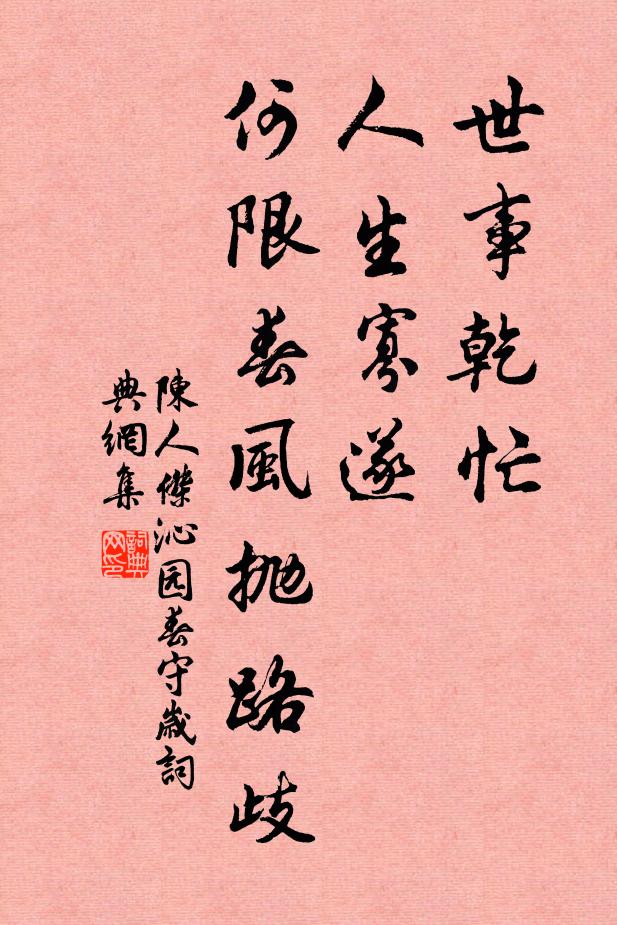 世事乾忙
人生寡遂
何限春風抛路歧
陳人傑沁园春守歲詞
典網集
詞典
网印